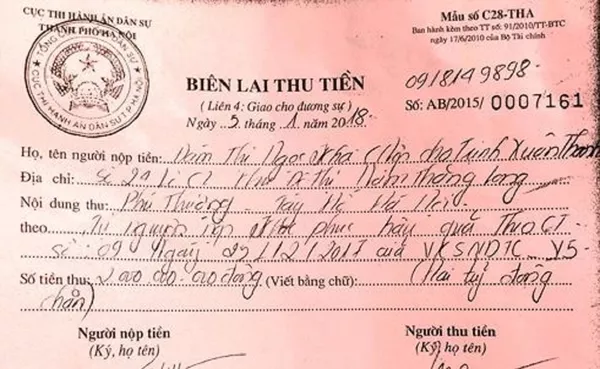 CỤC THI HÀNH ÁN DÂN SỰ
THÀNH PHỐ HÀ NỘI
Mẫu số C28-THA
Ban hành kèm theo TT số: 91/2010/TT-BTC
ngày 17/6/2010 của Bộ Tài chính
BIÊN LAI THU TIỀN
0918149898
(Liên 4: Giao cho đương sự)
Số: AB/2015/ 0007161
Ngày 5 tháng 1 năm 2018
Họ, tên người nộp tiền: Đàm Thị Ngọc Kha (Nộp cho Trịnh Xuân Thanh
Địa chỉ: Khu đô thị Nam Thăng Long
Nội dung thu: Phú Thượng - Tây Hồ Hà Nội
theo Tự nguyện nộp khắc phục hậu quả Theo CT
số 09 ngày 29/12/2017 của VKSNDTC V5
Số tiền thu: 2.000.000.000 đồng (Viết bằng chữ) (Hai tỷ đồng
chẵn)
Người nộp tiền
Người thu tiền
(Ký, họ tên)
(Ký, họ tên)